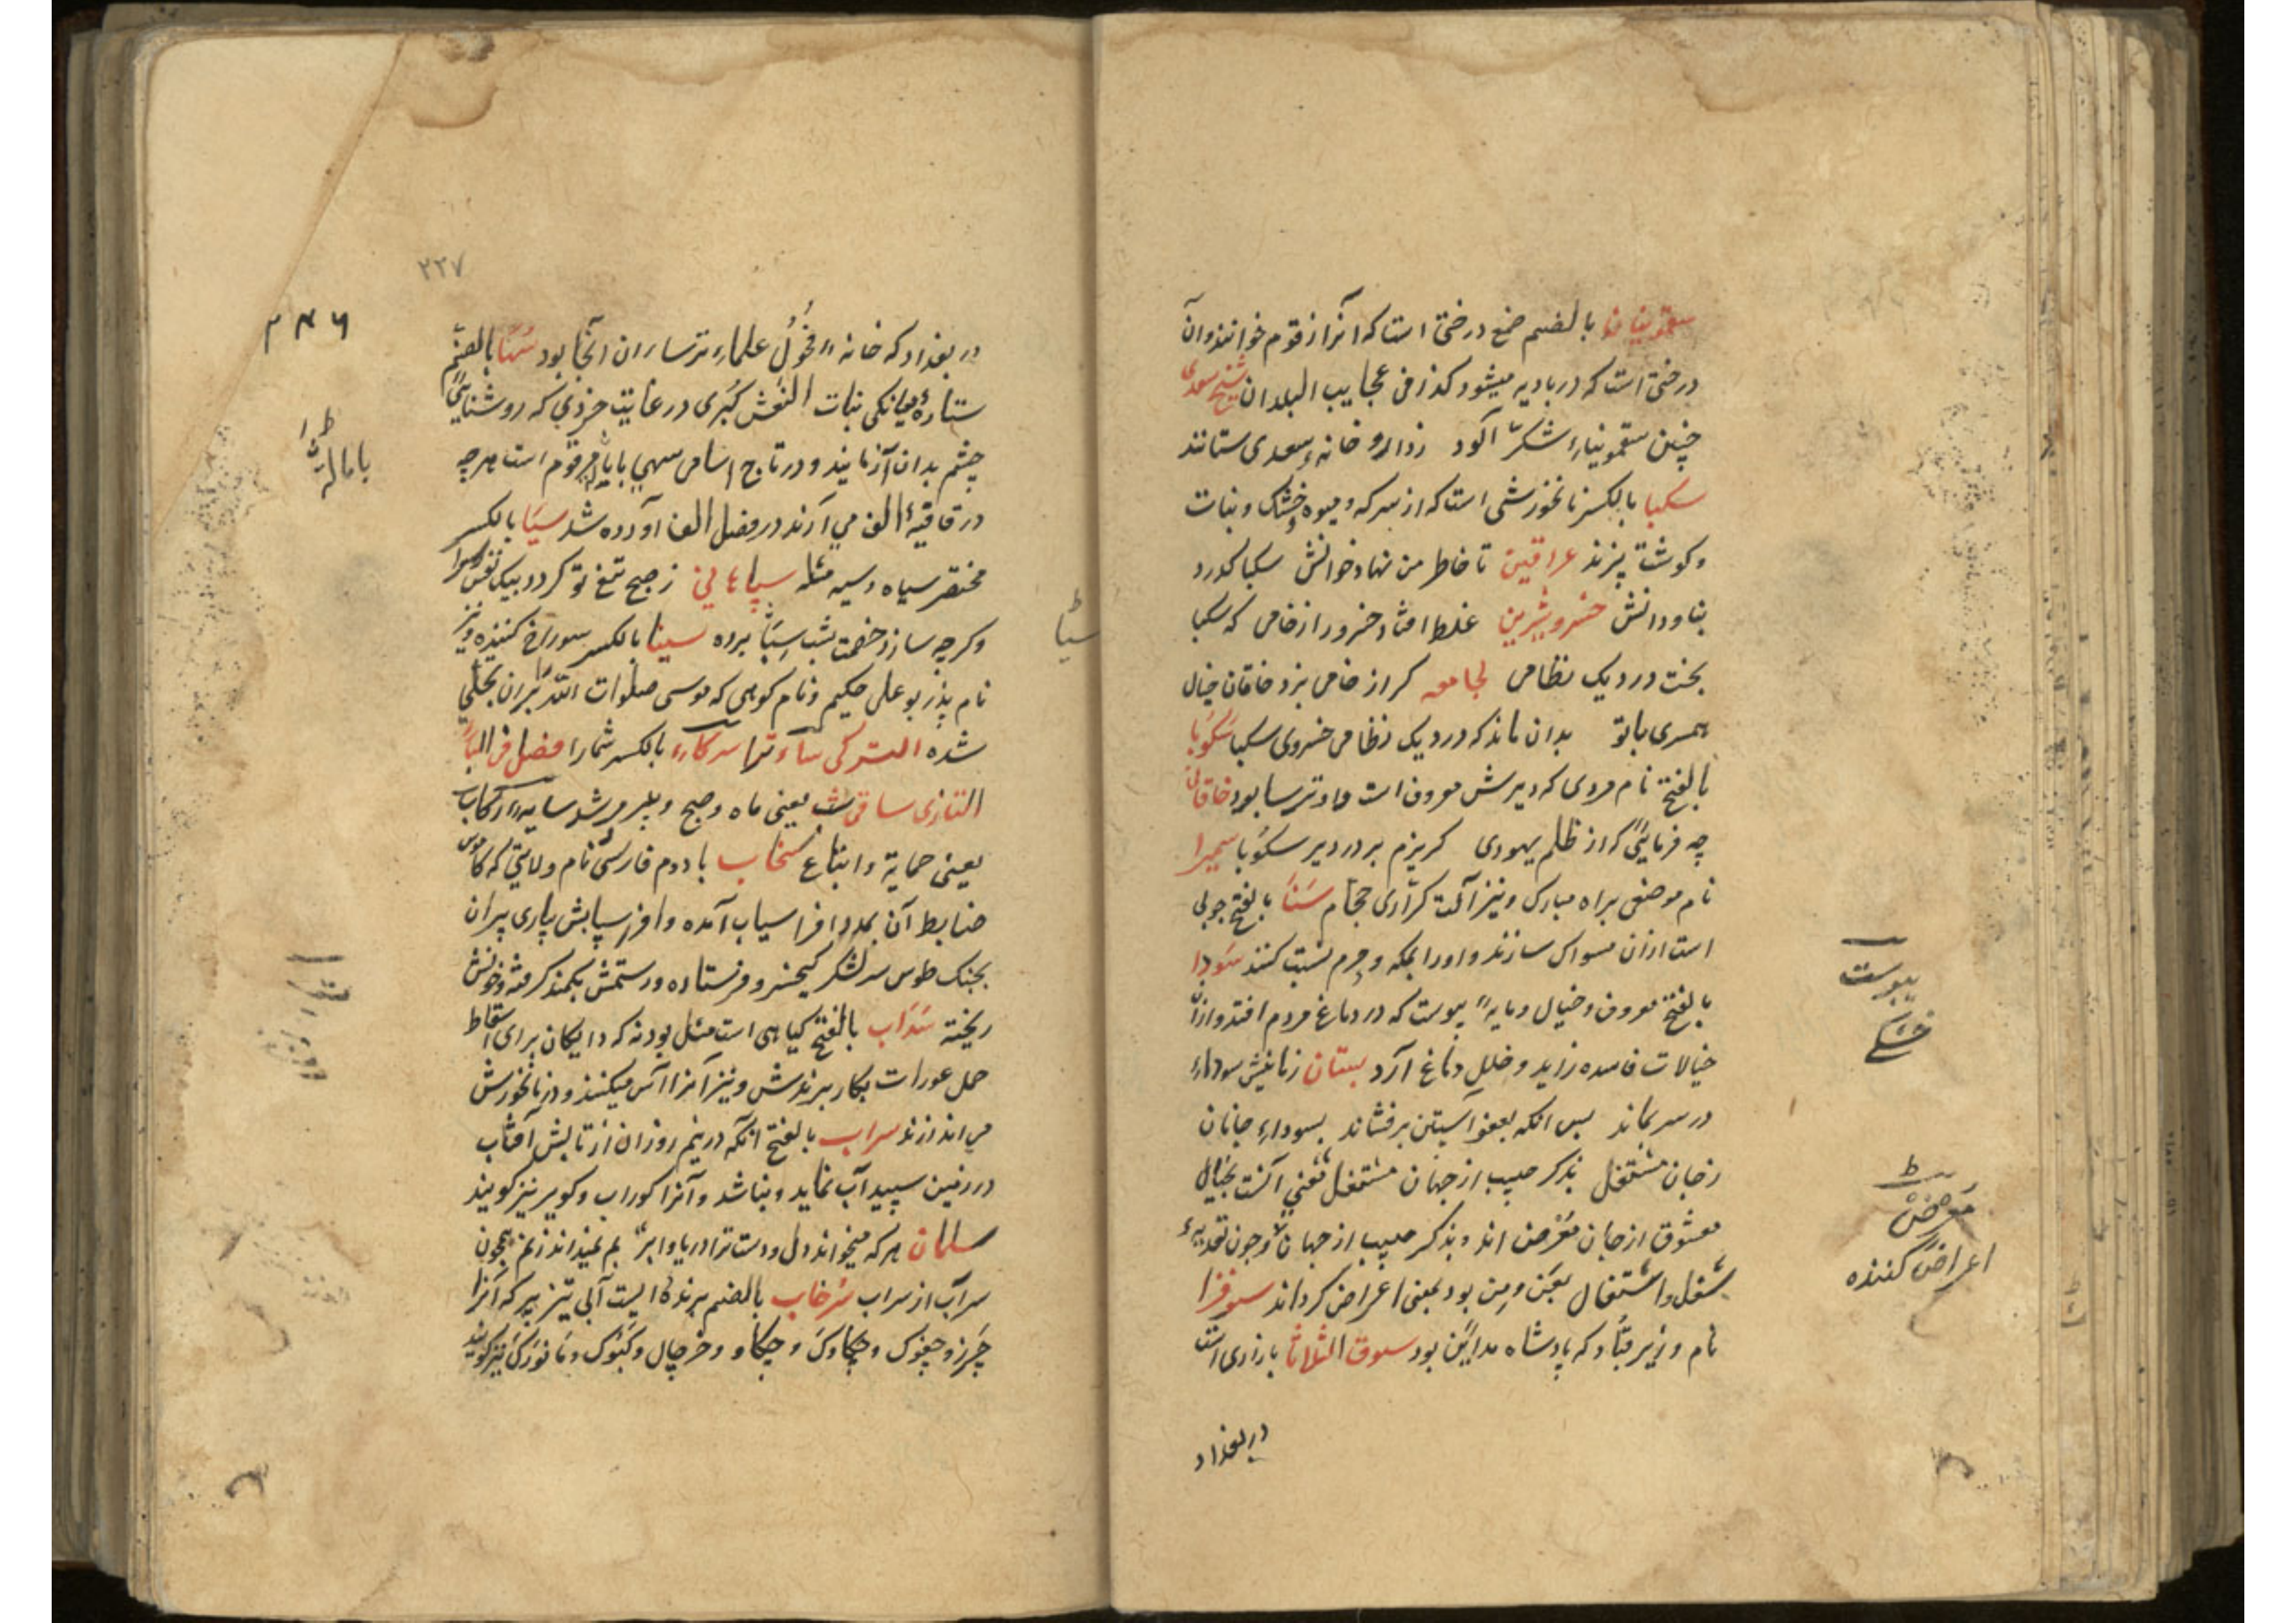 سقمونیا بالضم صمغ درختی است که آنرا زقوم خوانند و آن
درختی است که در بادیه میشود کذا فی عجایب البلدان شیخ سعدی
چنین سقمونیاء شکر آلود ز داروخانهٔ سعدی ستانند
سکبا بالکسر نانخورشی است که از سرکه و میوه خشک و نبات
و گوشت پزند عراقین تا خاطر من نهاد خوانش سکبا
خسرو شیرین غلط افتاد خسرو را ز خامی که سکبا
پخت در دیک نظامی لجامعه گر از خامی پزد خاقان خیال
همسری با تو بدان ماند که در دیک نظامی خسروی سکبا سکوبا
بالفتح نام مردی که دیرش معروف است و او ترسا بود خاقانی
چه فرمایی گر از ظلم یهودی گریزم بر در دیر سکوبا سمیرا
نام موضعی براه مبارک و نیز آلت حجام سنا بالفتح چوبی
است از آن مسواک سازند و او را بمکه و حرم نسبت کنند سودا
بالفتح معروف و خیال و مایهٔ یبوست که در دماغ مردم افتد و از آن
خیالات فاسده زاید و خلل دماغ آرد بستان زمانیش سوداء
در سر بماند پس آنکه بعفو آستین برفشاند بسوداء جانان
ز جان مشتغل بذکر حبیب از جهان مشتغل یعنی آنست بخیال
معشوق از جان معرض اند و بذکر حبیب از جهان و چون تعدیهٔ
شغل و اشتغال بعن و من بود بمعنی اعراض کردانند سوفرا
نام وزیر قباد که پادشاه مداین بود سوق الثلاثا بازاری است
در بغداد
یبوست
خشکی
معرض
اعراض کننده
۲۲۷
در بغداد که خانهٔ فحول علماء ترسایان آنجا بود سها بالضم
ستارهٔ میانکی بنات النعش کبری در غایت خردی که روشنایی
چشم بدان آزمایند و در تاج اسامی سهی بایا مرقوم است هرچه
در قافیهٔ الف می آرند در فصل الف آورده شد سیا بالکسر
مختصر سیاه و سیه مثله ز صبح تیغ تو گردد بیک نفس رسوا
وگرچه سازد خصمت شب سیا پرده سینا بالکسر سوراخ کننده و نیز
نام پدر بو علی حکیم و نام کوهی که موسی صلوات الله بران تجلی
شده الترکی بالکسر شما را فصل فی الباء
التازی ساقی شب یعنی ماه و صبح سایهٔ رکاب
یعنی حمایة و اتباع سنجاب با دوم فارسی نام ولایتی که کاموس
ضابط آن بمدد افراسیاب آمده و افراسیابش بیاری پیران
بجنک طوس سر لشکر کیخسرو فرستاده و رستمش بکمند کرفته و خونش
ریخته سداب بالفتح کیاهی است مثل پودنه که دایکان برای اسقاط
حمل عورات بکار برندش و نیز آنرا آس میکنند و در نانخورش
می اندازند سراب بالفتح آنکه در نیم روزان از تابش آفتاب
در زمین سپید آب نماید و نباشد و آنرا کوراب و کویر نیز کویند
سلمان هر که میخواند دل و دست ترا دریا و ابر می نداند ز یم همچون
سرآب از سراب سرخاب بالضم پرنده ایست آبی تیز پر که آنرا
چرز و چغوک و چکاوک و چکاو و خرچال نیز کویند
سیا